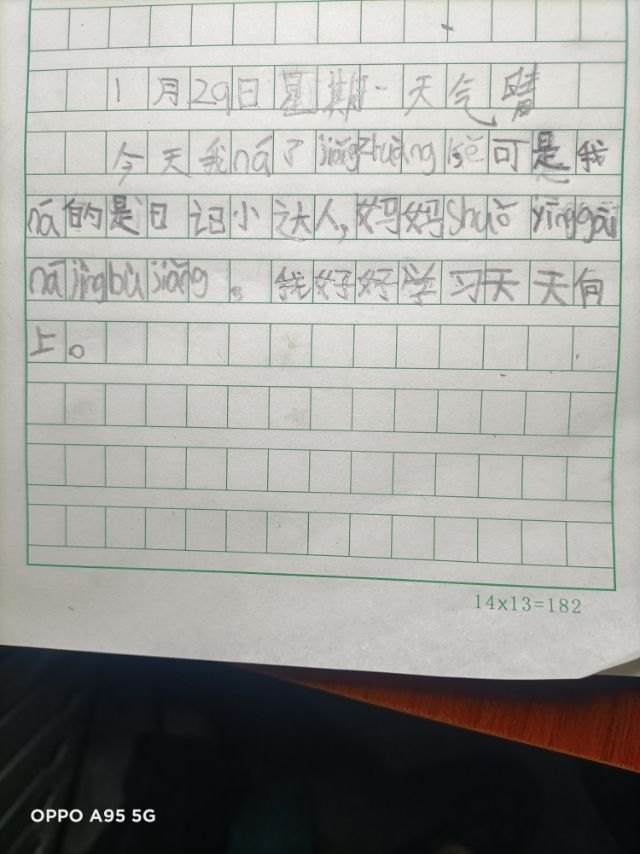 1月29日星期一天气晴
今天我ná了jiǎngzhuàng,kě可是我
ná的是日记小达人,妈妈shuō yīnggāi
nájìngbùjiǎng。我好好学习天天向
上。
14x13=182
OPPO A95 5G